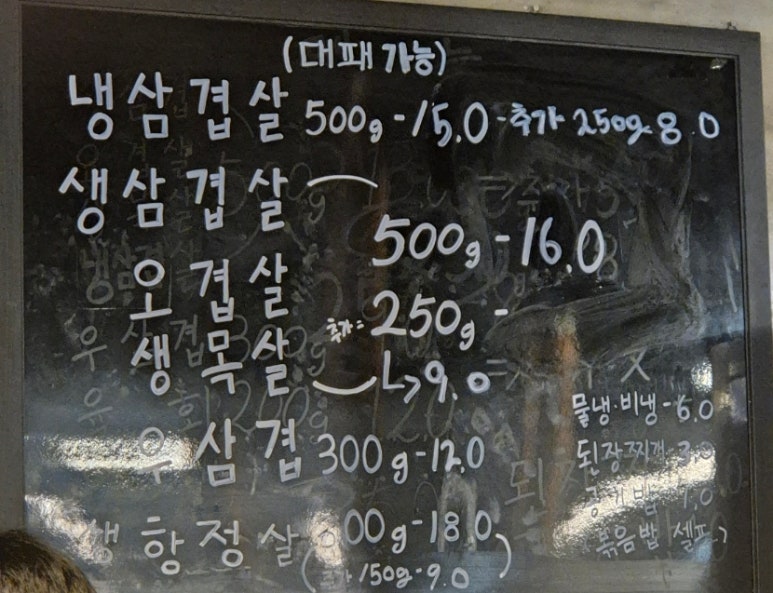 (대패 가능)
냉삼겹살 500g - 15.0 - 추가 250g 8.0
생삼겹살
500g - 16.0
오겹살
추가: 250g -
생목살
↳ 9.0
물냉·비냉 - 6.0
우삼겹 300g - 12.0
된장찌개 3.0
공기밥 1.0
볶음밥 셀프
생항정살 300g - 18.0
(추가 150g - 9.0)